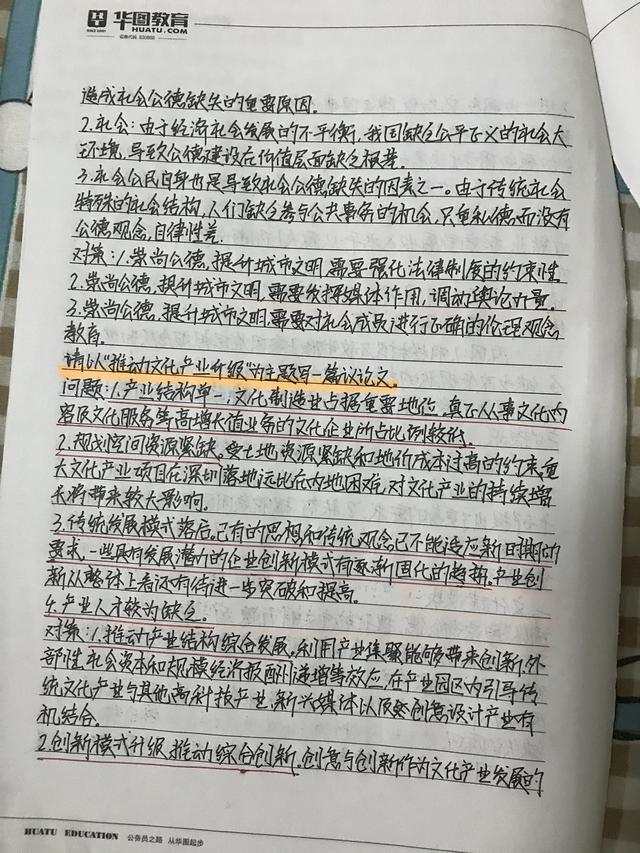 华图教育
HUATU.COM
造成社会公德缺失的重要原因。
2.社会:由于经济社会发展的不平衡,我国缺乏公平正义的社会大
环境,导致公德建设在价值层面缺乏根基。
3.社会公民自身也是导致社会公德缺失的因素之一。由于传统社会
特殊的社会结构,人们缺乏参与公共事务的机会,只重私德而没有
公德观念,自律性差.
对策:1.崇尚公德,提升城市文明,需要强化法律制度的约束性
2.崇尚公德,提升城市文明,需要发挥媒体作用,调动舆论力量.
3.崇尚公德,提升城市文明,需要对社会成员进行正确的伦理观念
教育.
请以"推动文化产业升级"为主题写一篇议论文。
问题:1.产业结构单一,文化制造业占据重要地位,真正从事文化内
容及文化服务等高增长值业务的文化企业所占比例较低.
2.规划空间资源紧缺.受土地资源紧缺和地价成本过高的约束,重
大文化产业项目在深圳落地远比在内地困难,对文化产业的持续增
长将带来较大影响.
3.传统发展模式落后.已有的思想和传统观念已不能适应新时期的
要求,一些具有发展潜力的企业创新模式有逐渐固化的趋势,产业创
新从整体上看还有待进一步突破和提高.
4.产业人才较为缺乏.
对策:1.推动产业结构综合发展,利用产业集聚能够带来创新、外
部性、社会资本和规模经济报酬递增等效应,在产业园区内引导传
统文化产业与其他高科技产业、新兴媒体以及创意设计产业有
机结合.
2.创新模式升级,推动综合创新.创意与创新作为文化产业发展的
HUATU EDUCATION 公务员之路 从华图起步